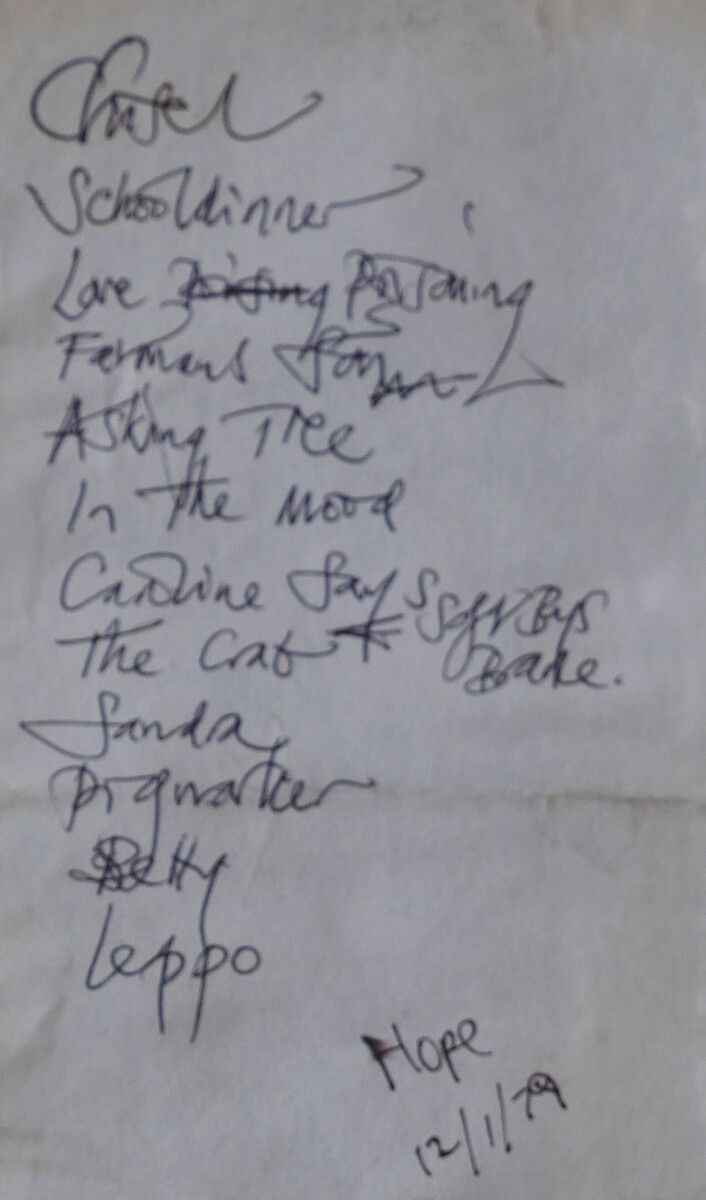 Chisel
Schooldinner
Love Poisoning
Farmers
Asking Tree
In The Mood
Caroline Says
The Crab
Sandra
Pigworker
Betty
Leppo
Hope
12/1/79